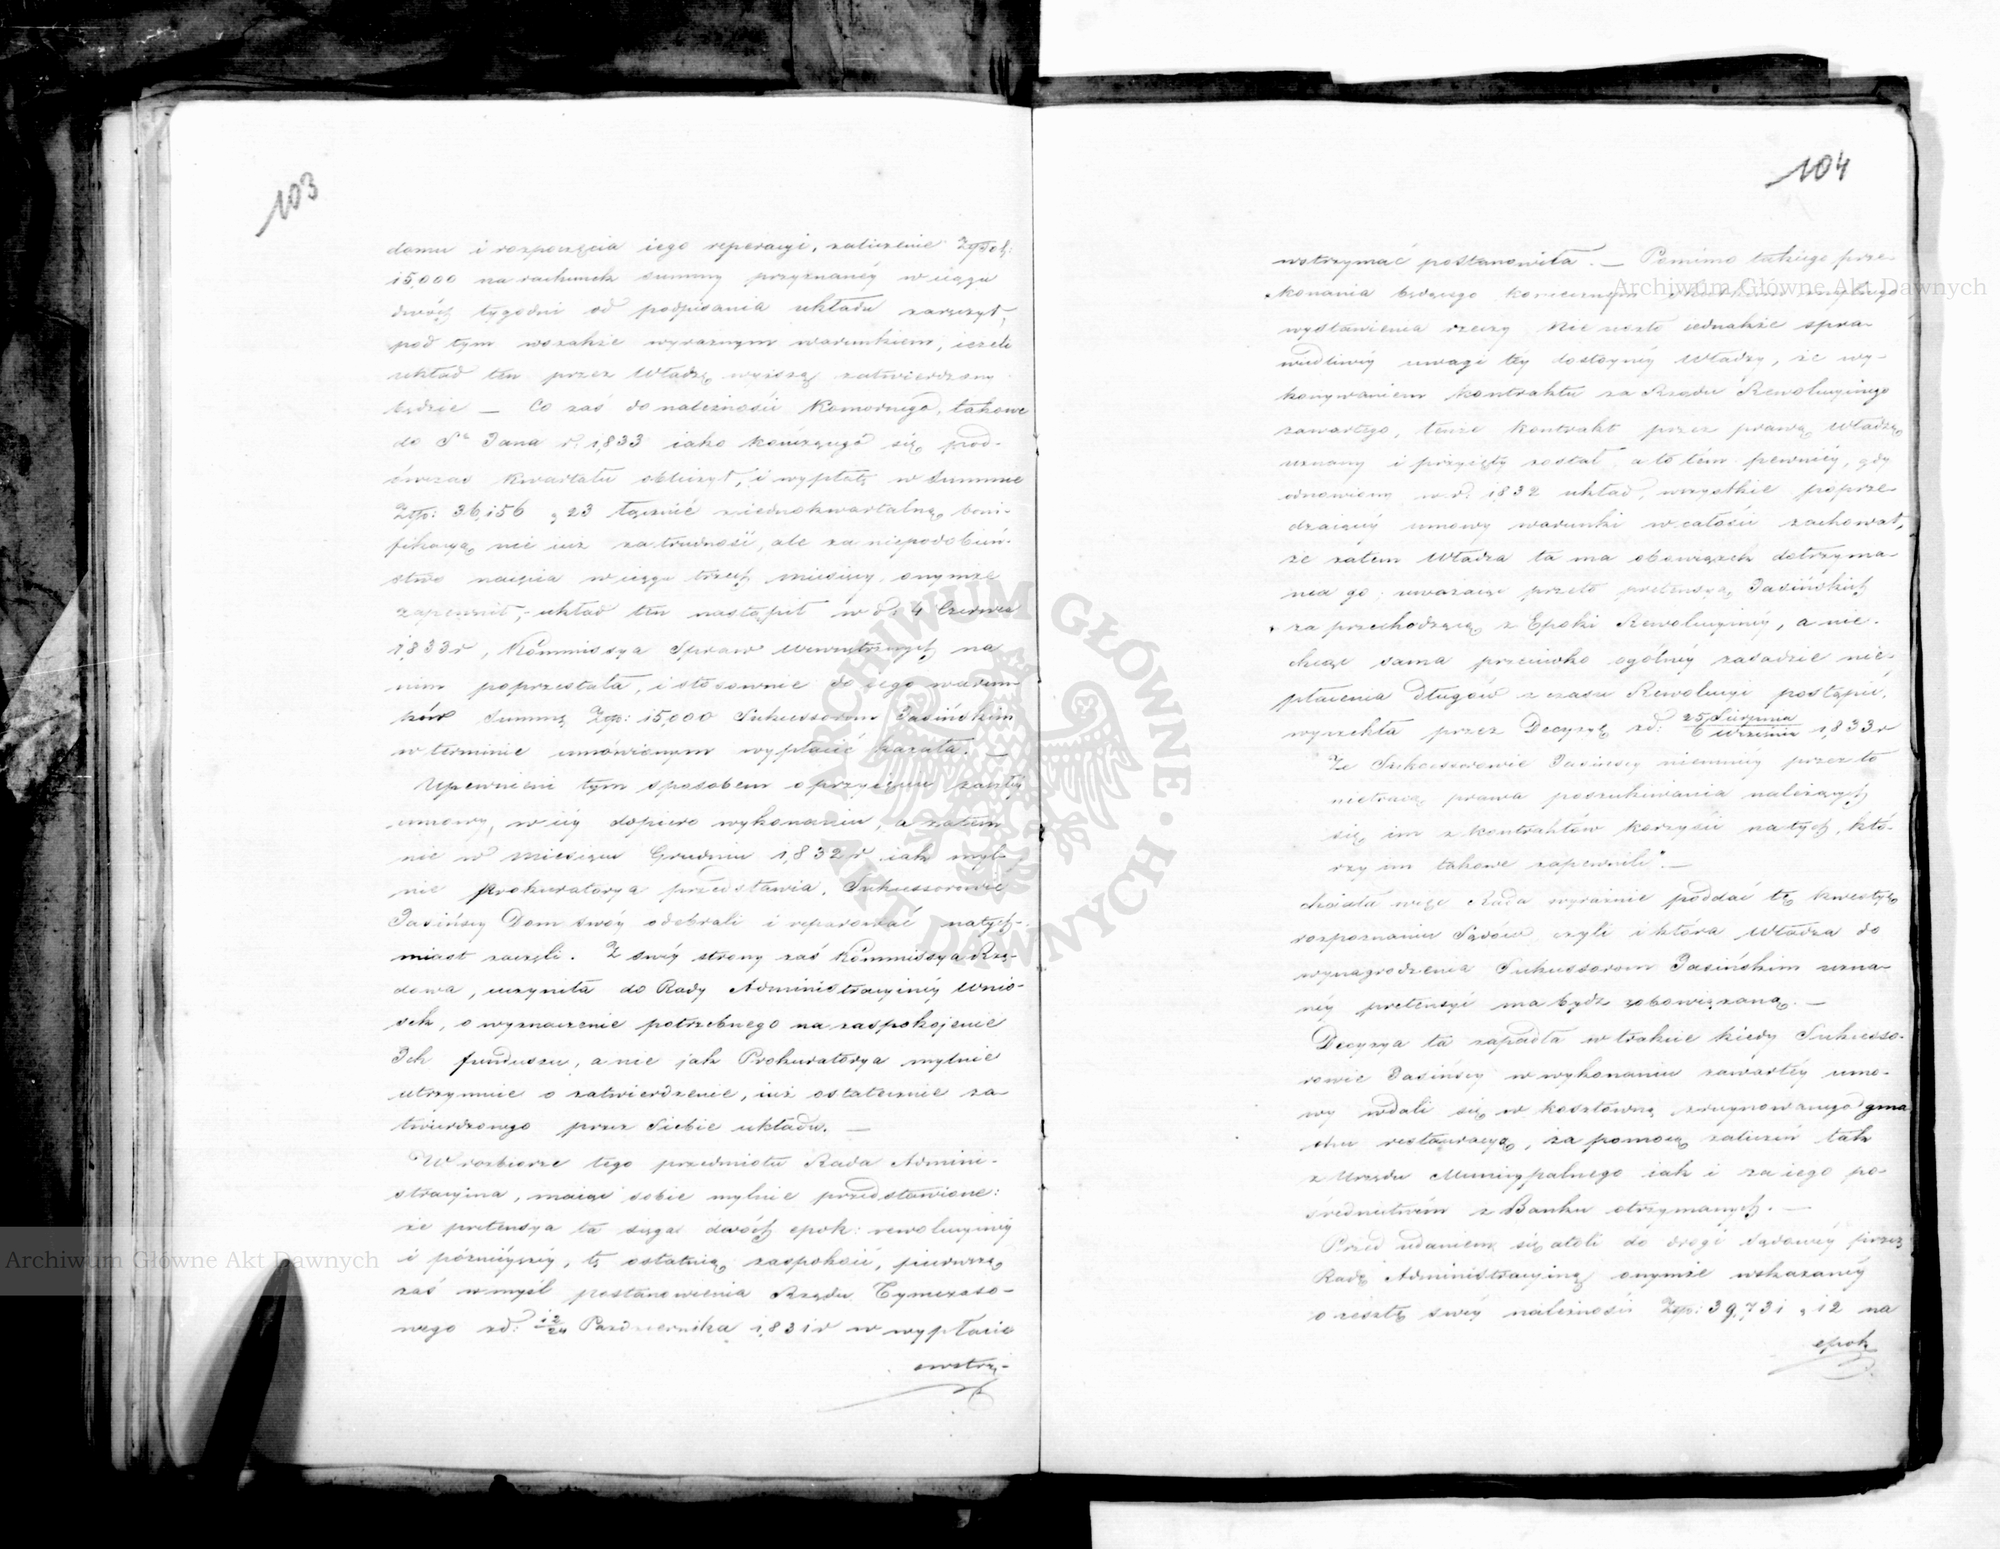 103
domu i rozpoczęcia iego reperacyi, zaliczenie Złpol:
15,000 na rachunek summy przyznanéy w ciągu
dwóch tygodni od podpisania układu zaręczył,
pod tym wszakże wyraznym warunkiem, ieżeli
układ ten przez Władzę wyższą zatwierdzony
będzie — Co zaś do należności Komornégo, takowe
do Sgo Jana r. 1833 iako kończącego się pod-
ówczas kwartału obliczył, i wypłatę w Summie
Złp: 36,156 g 23 łącznie z iednokwartalną boni-
fikacyą, nie iuż za trudność, ale za niepodobień-
stwo naięcia w ciągu trzech miesięcy, onymże
zapewnił, układ ten nastąpił w d. 4 Czerwca
1833 r, Kommissya Spraw Wewnętrznych na
nim poprzestała, i stosownie do iego warun-
ków Summę Złp: 15,000 Sukcessorom Jasińskim
w terminie umówionym wypłacić kazała. —
Upewnieni tym sposobem o przyięciu zaszłéy
umowy, w iéy dopiero wykonaniu, a zatem
nie w Miesiącu Grudniu 1832 r iak myl-
nie Prokuratorya przedstawia, Sukcessorowie
Jasińscy Dom swóy odebrali i reparować natych-
miast zaczęli. Z swéy strony zaś Kommissya Rzą-
dowa, uczyniła do Rady Administracyinéy Wnio-
sek, o wyznaczenie potrzebnego na zaspokojenie
Ich funduszu, a nie jak Prokuratorya mylnie
utrzymuie o zatwierdzenie, iuż ostatecznie za-
twierdzonego przez Siebie układu. —
W rozbiorze tego przedmiotu Rada Admini-
stracyina, maiąc sobie mylnie przedstawione:
że pretensya ta sięga dwóch epok: rewolucyinéy
i póznieyszéy, tę ostatnią zaspokoić, pierwszą
zaś w myśl postanowienia Rządu Tymczaso-
wego zd: 12/24 Pazdziernika 1831 r w wypłacie
wstrzy-
104
wstrzymać postanowiła. — Pomimo takiego prze-
konania będącego koniecznym skutkiem mylnego
wystawienia rzeczy nie uszło iednakże spra-
wiedliwéy uwagi téy dostoynéy Władzy, że wy-
konywaniem kontraktu za Rządu Rewolucyinego
zawartego, tenże kontrakt przez prawą Władzę
uznany i przyięty został, a to tém pewniéy, gdy
odnowiony w r. 1832 układ, wszystkie poprze-
dzaiącéy umowy warunki w całości zachował,
że zatem Władza ta ma obowiązek dotrzyma-
nia go; uważaiąc przeto pretensyą Jasińskich
za przechodzącą z Epoki Rewolucyinéy, a nie-
chcąc sama przeciwko ogólnéy zasadzie nie-
płacenia długów z czasu Rewolucyi postąpić,
wyrzekła przez Decyzyę zd: 25 Sierpnia/6 Września 1833 r
Że Sukcessorowie Jasińscy niemniéy przez to
nietracą prawa poszukiwania należących
się im z kontraktów korzyści na tych, któ-
rzy im takowe zapewnili". —
chciała więc Rada wyraźnie poddać tę kwestyę
rozpoznaniu Sądów czyli i która Władza do
wynagrodzenia Sukcessorom Jasińskim uzna-
néy pretensyi ma bydź zobowiązaną. —
Decyzya ta zapadła w trakcie kiedy Sukcesso-
rowie Jasińscy w wykonaniu zawartéy umo-
wy wdali się w kosztowną zruynowanego gma-
chu restauracyą, za pomocą zaliczeń tak
z Urzędu Municypalnego iak i za iego po-
średnictwem z Banku otrzymanych. —
Przed udaniem się atoli do drogi Sądowéy przez
Radę Administracyiną onymże wskazanéy
o resztę swéy należności Złp: 39,731 g 12 na
epok
Archiwum Główne Akt Dawnych
Archiwum Główne Akt Dawnych
ARCHIWUM GŁÓWNE AKT DAWNYCH